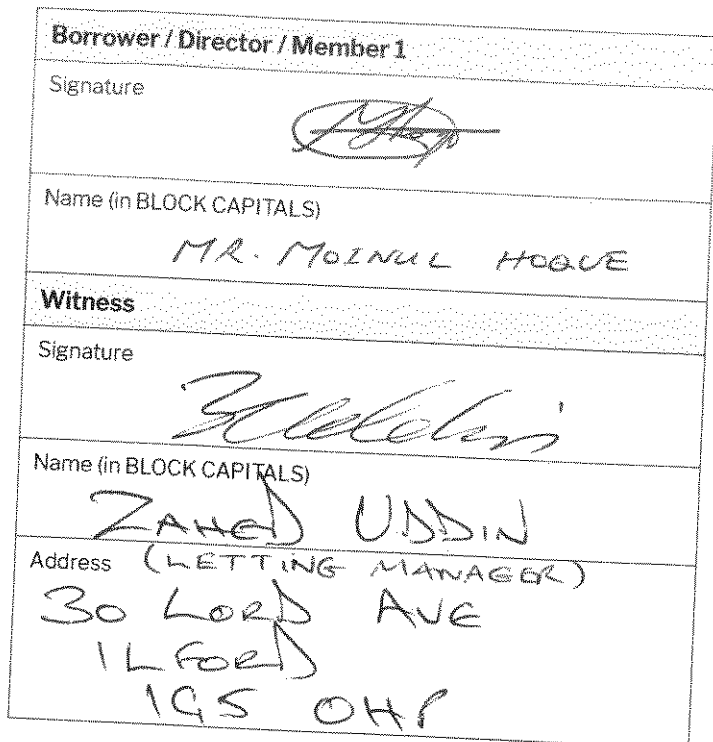 Borrower / Director / Member 1
Signature
Name (in BLOCK CAPITALS)
MR. MOINUL HOQUE
Witness
Signature
Name (in BLOCK CAPITALS)
ZAHED UDDIN
Address (LETTING MANAGER)
30 LORD AVE
ILFORD
IG5 OHP